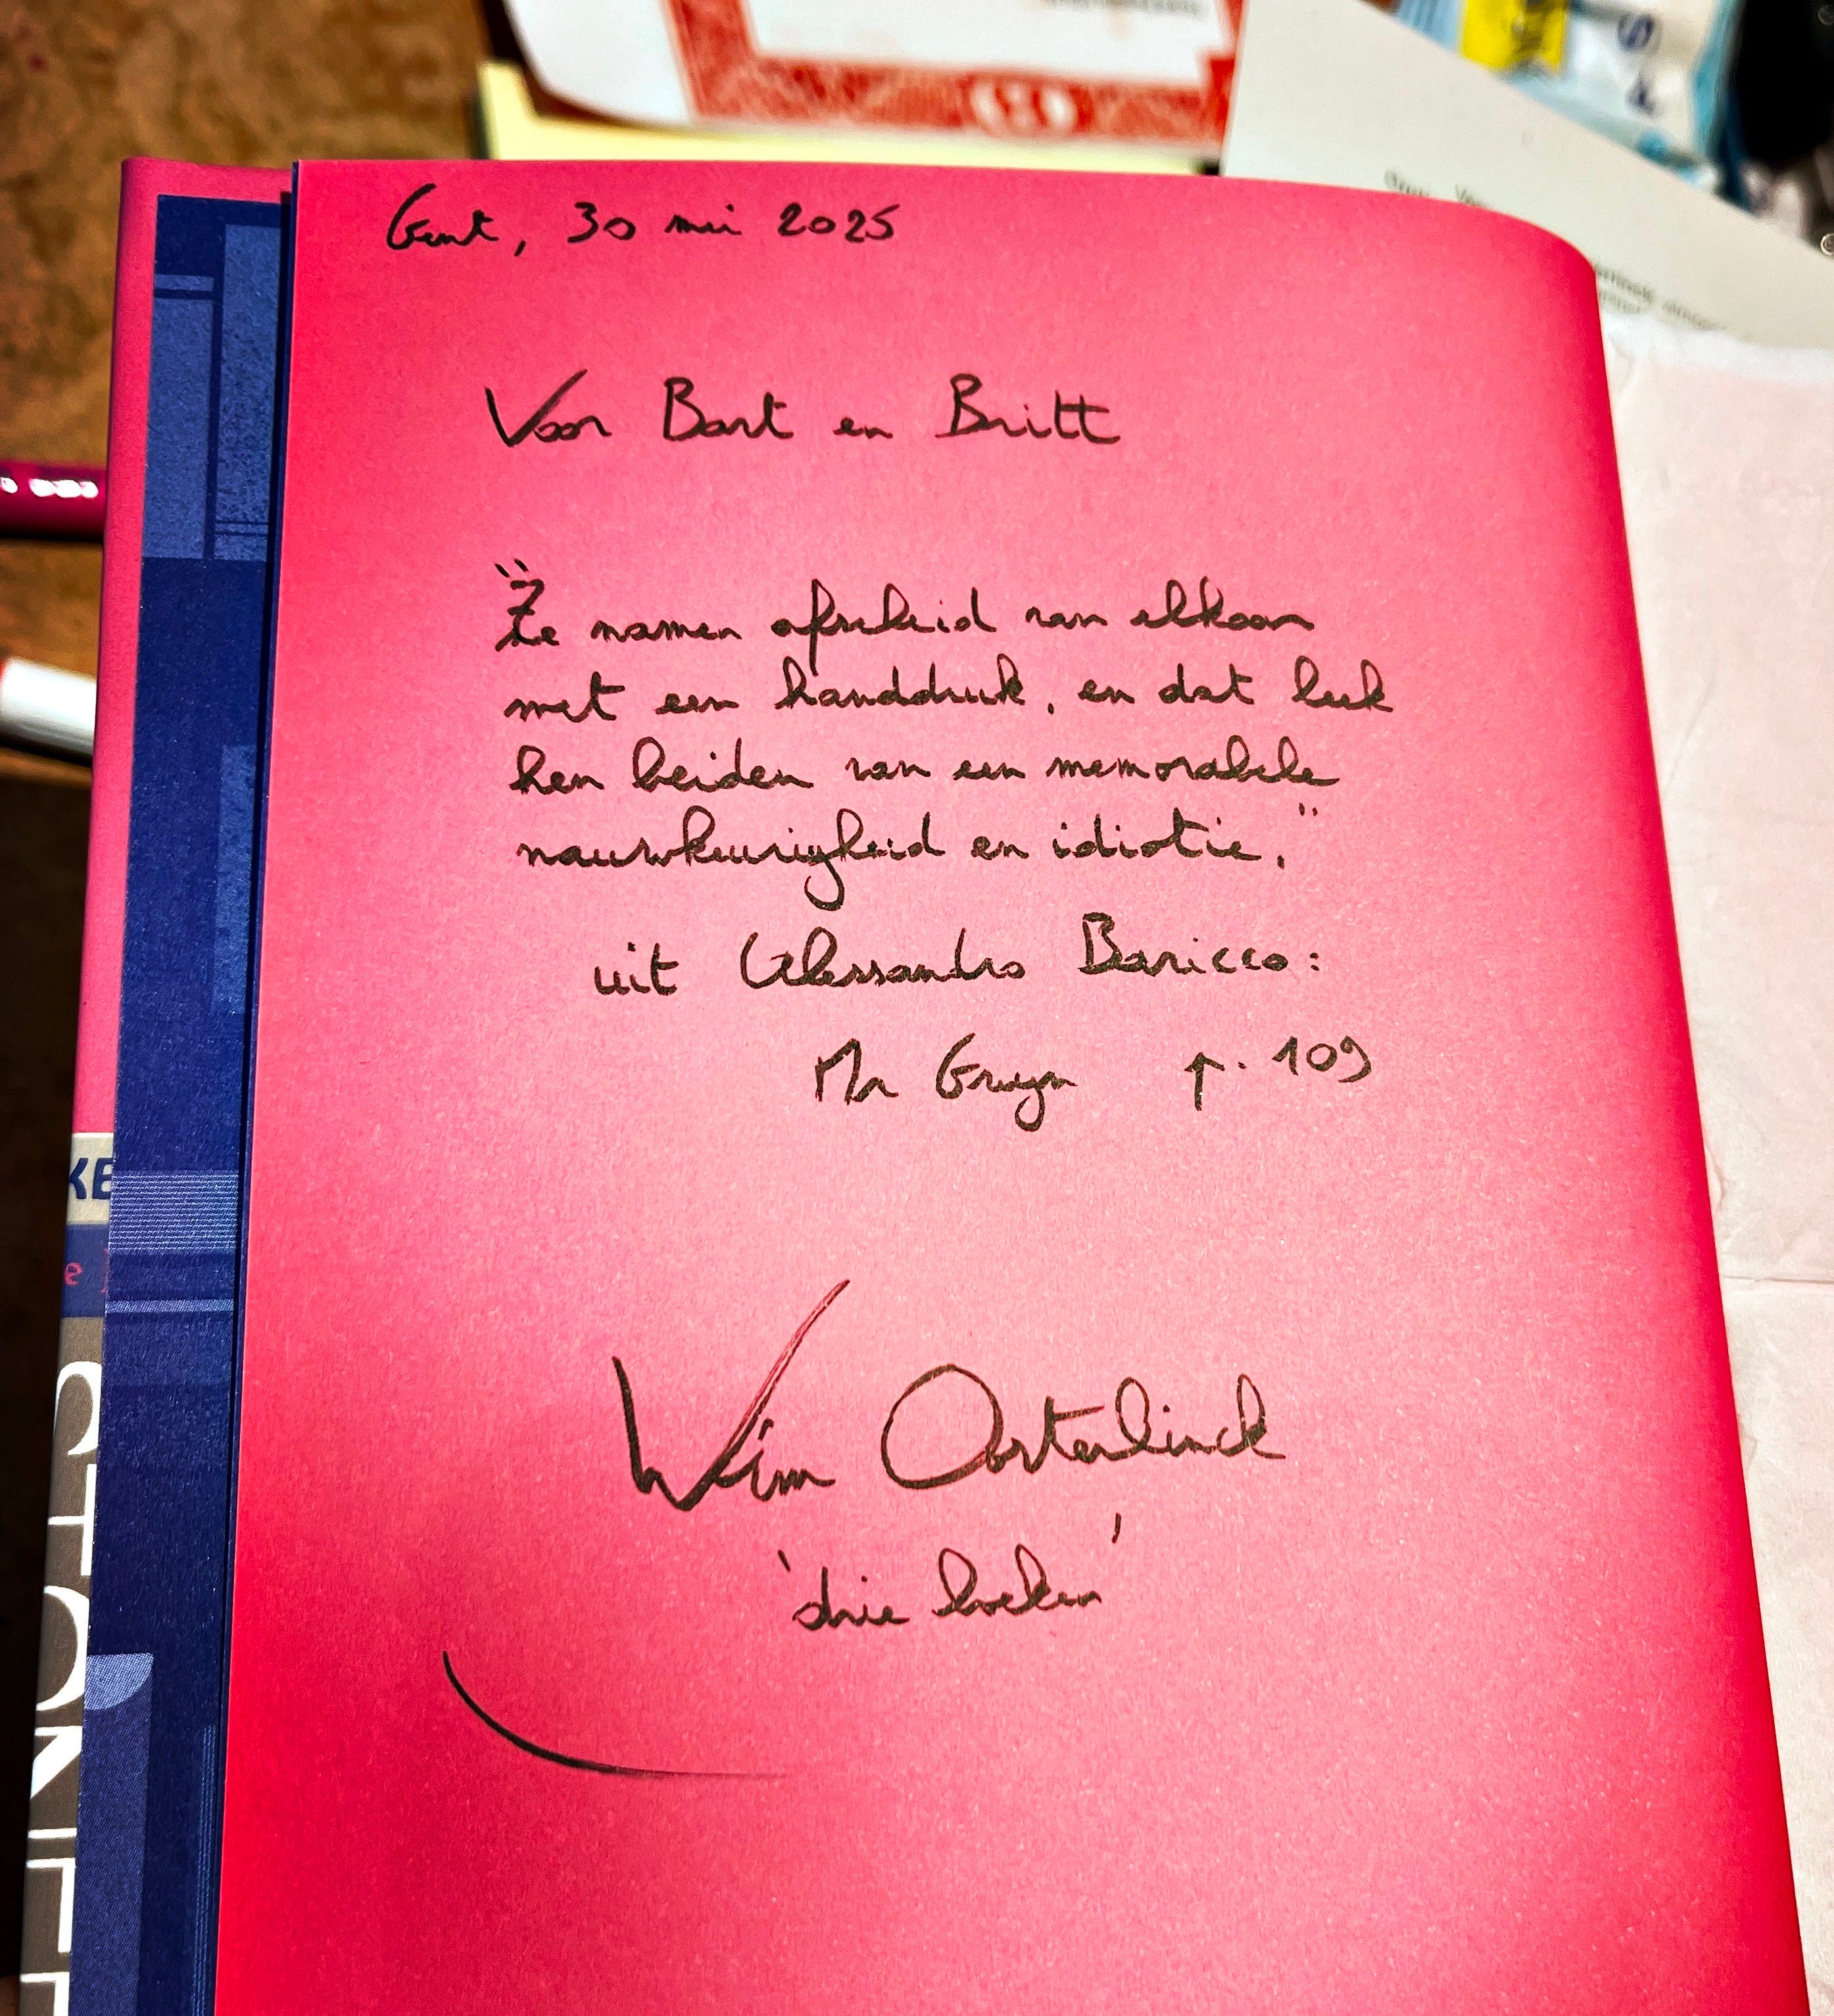 Gent, 30 mei 2025
Voor Bart en Britt
"Ze namen afscheid van elkaar
met een handdruk, en dat leek
hen beiden van een memorabele
nauwkeurigheid en idiotie."
uit Alessandro Baricco:
Mr Gwyn p. 109
Wim Oosterlinck
'drie boeken'
KE
e
STONE